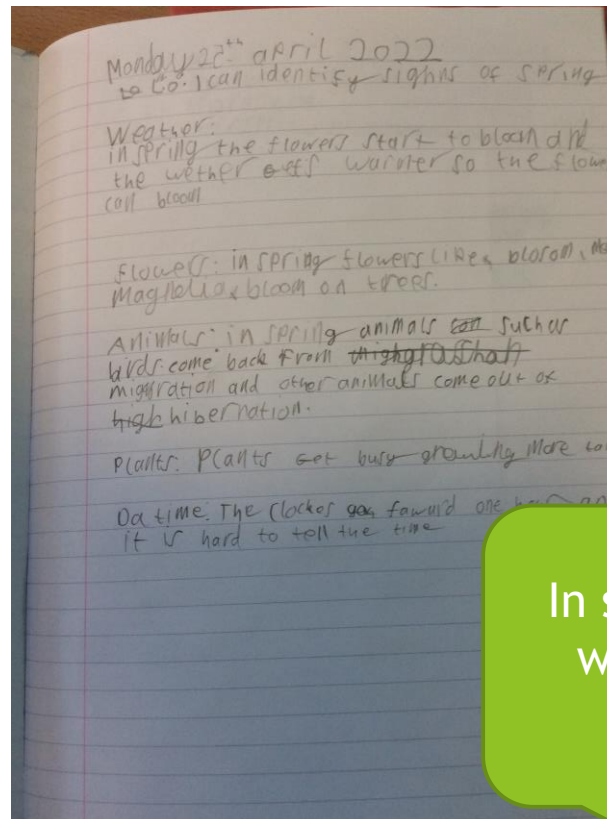 Monday 22th april 2022
Lo: I can identify sighns of spring
Weather:
in spring the flowers start to bloom and
the wether warmer so the flowe
can bloom
flowers: in spring flowers like blosom,
Magnolia bloom on trees.
Animals: in spring animals such as
birds come back from
migyration and other animals come out of
high hibernation.
Plants: Plants get busy growing More
Da time: The Clockes foward one
it is hard to tell the time
In
w